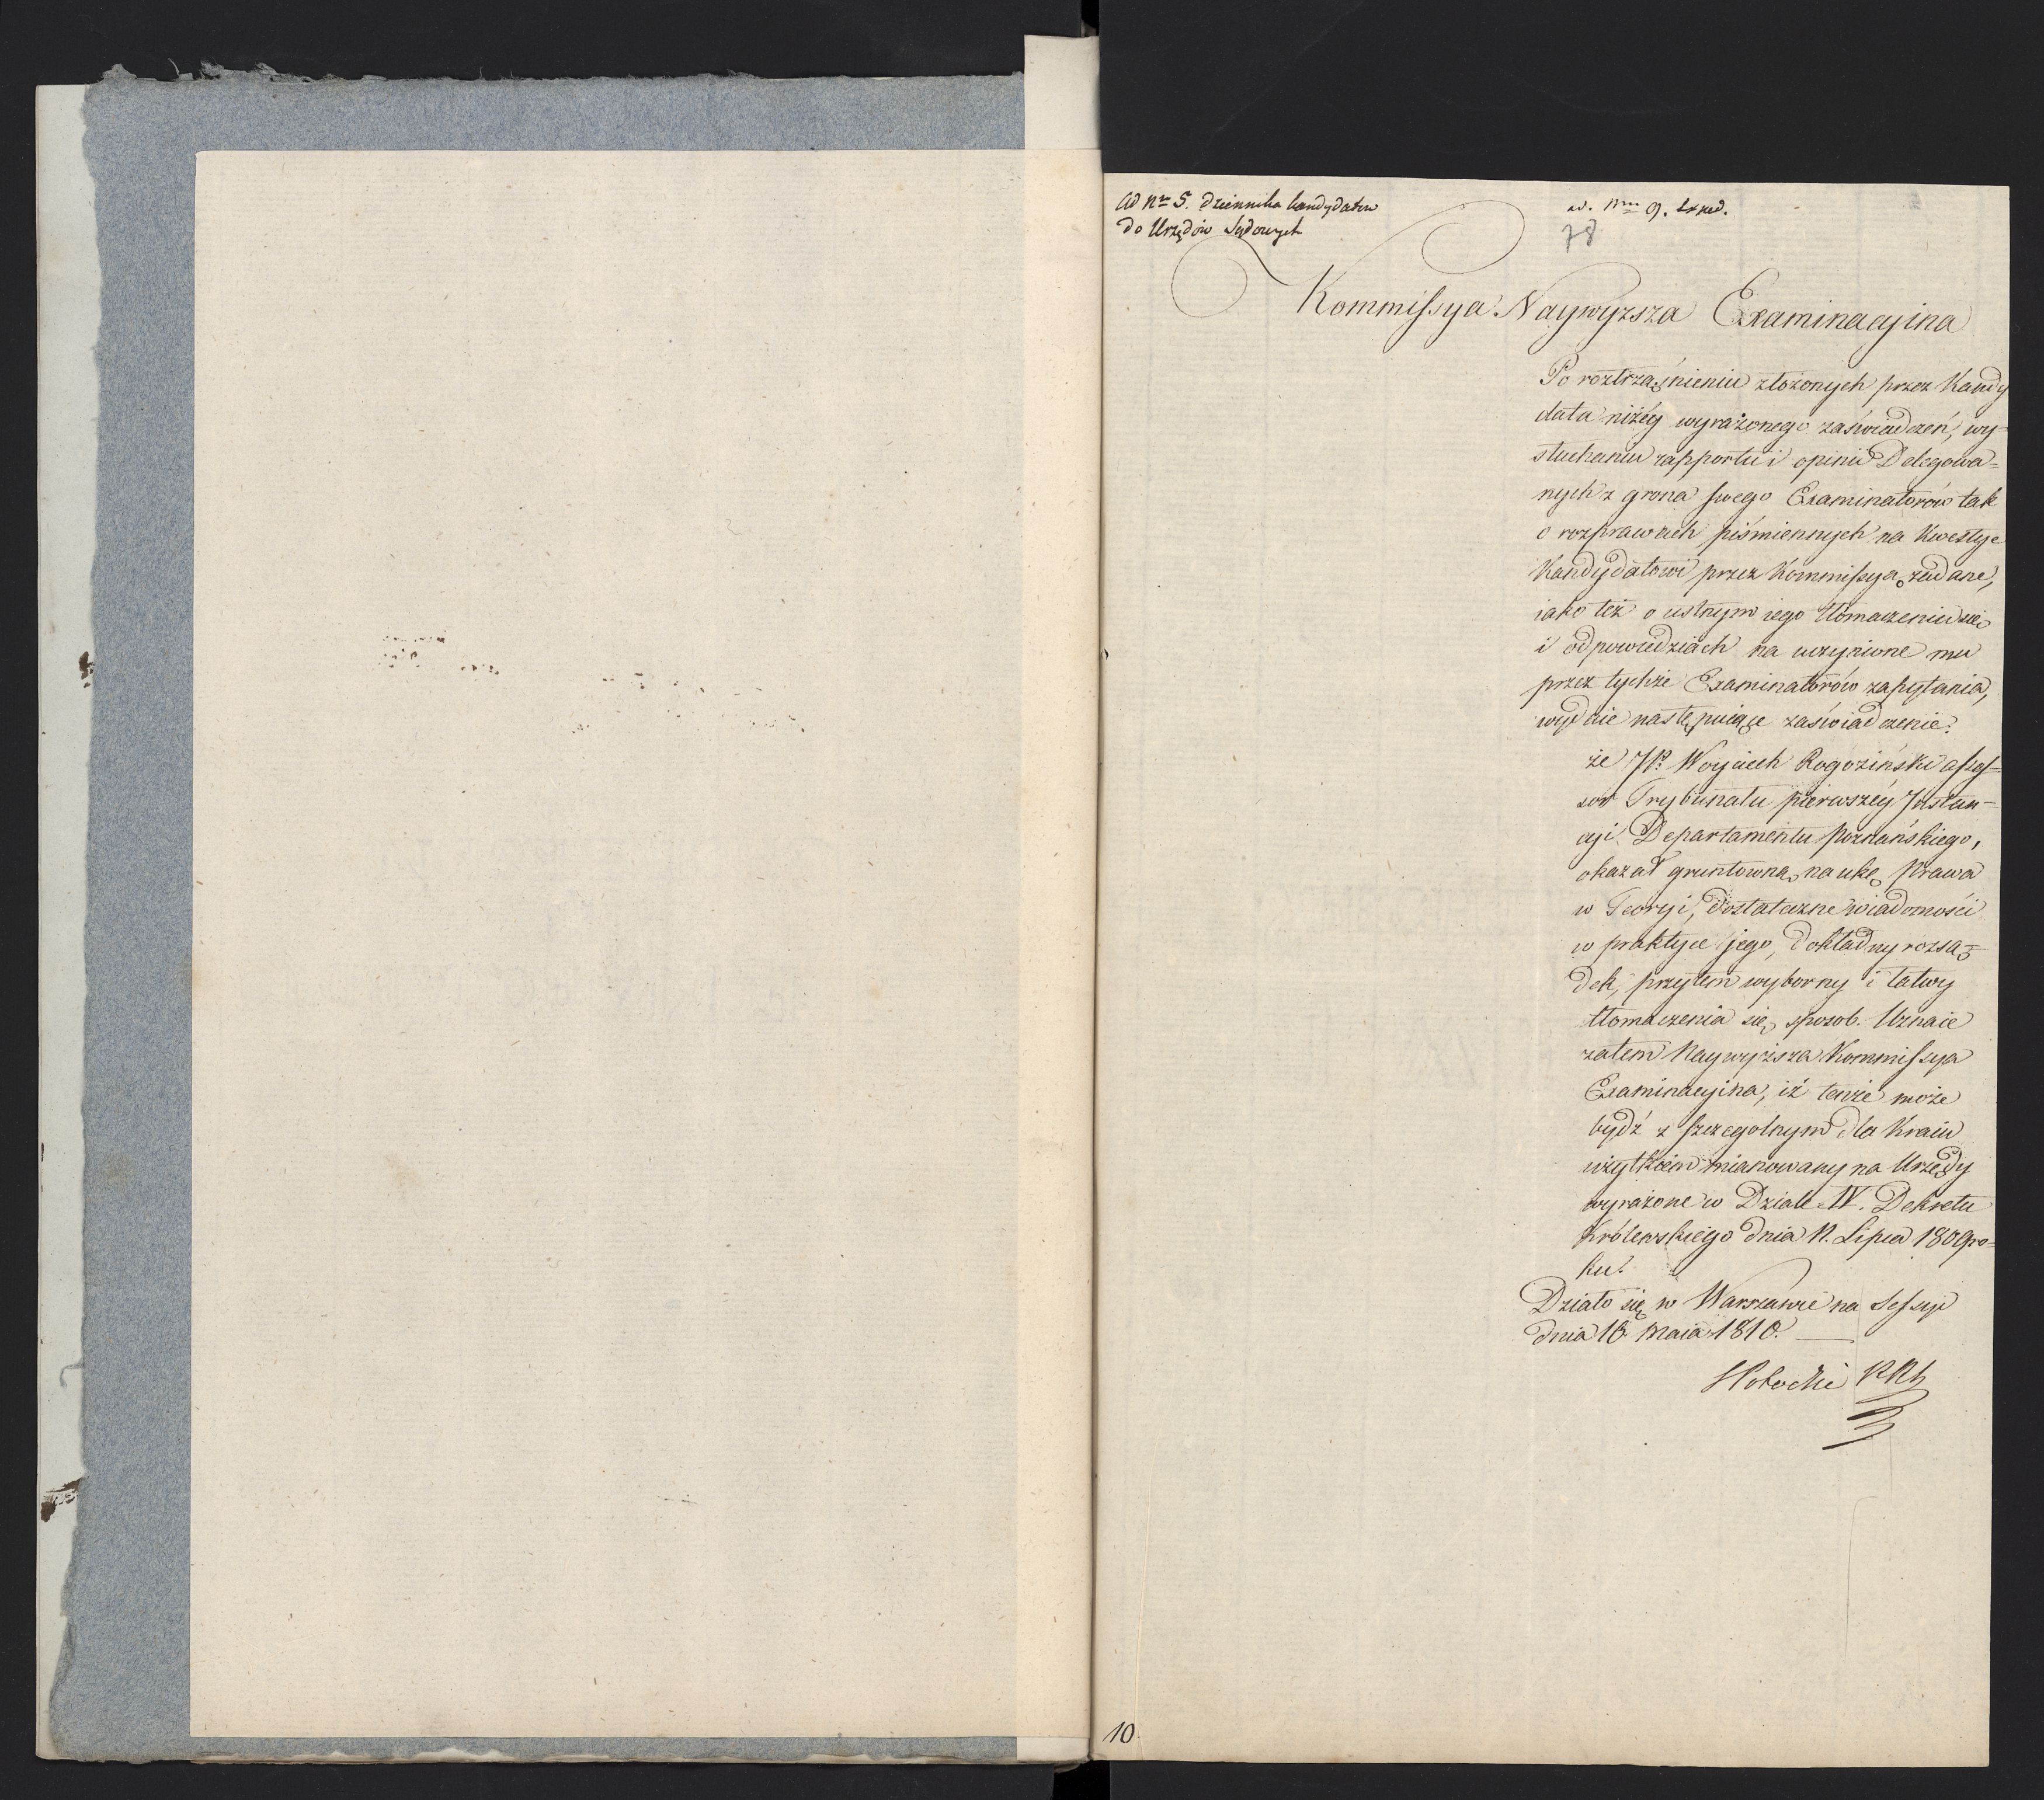 ad Nr 5. dziennika kandydatów
do Urzędów Sądowych
ad. Nrm 9. Exped.
78
Kommissya Naywyższa Examinacyina
Po roztrząśnieniu złożonych przez Kandy
data niżéy wyrażonego zaświadczeń, wy=
słuchaniu rapportu i opinii Delegowa=
nych z grona swego Examinatorów tak
o rozprawach piśmiennych na Kwestye
Kandydatowi przez Kommissyą zadane,
iako też o ustnym iego tłomaczeniu się
i odpowiedziach na uczynione mu
przez tychże Examinatorów zapytania,
wydaie następuiące zaświadczenie.
że JP. Woyciech Rogoziński asses=
sor Trybunału pierwszéy Instan=
cyi Departamentu Poznańskiego,
okazał gruntowną naukę Prawa
w Teoryi, dostateczne wiadomości
w praktyce jego, dokładny rozsą=
dek, przytem wyborny i łatwy
tłomaczenia się sposob. Uznaie
zatem Naywyższa Kommissya
Examinacyina, iż tenże może
bydź z szczegolnym dla Kraiu
użytkiem mianowany na Urzędy
wyrażone w Dziale IV. Dekretu
Królewskiego dnia Lipca 1809 ro=
ku.
Działo się w Warszawie na Sessyi
dnia 16 Maia 1810.
Potocki
10